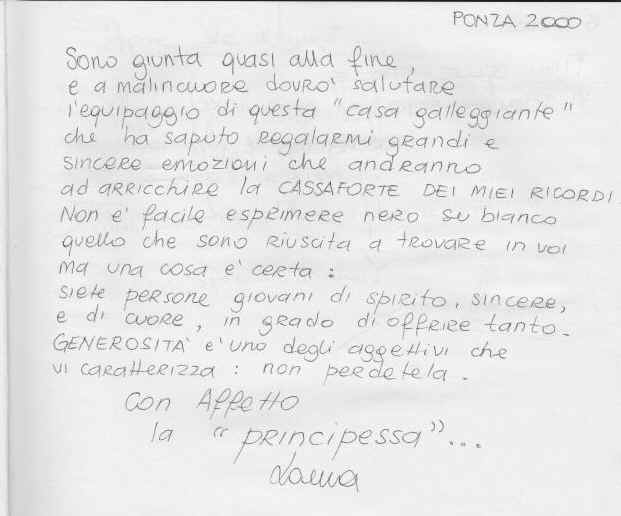 PONZA 2000
Sono giunta quasi alla fine,
e a malincuore dovrò salutare
l'equipaggio di questa "casa galleggiante"
che ha saputo REGALARMI grandi e
sincere emozioni che andranno
ad ARRICCHIRE la CASSAFORTE DEI MIEI RICORDI.
Non è facile esprimere nero su bianco
quello che sono riuscita a trovare in voi
ma una cosa è certa :
siete persone giovani di spirito, sincere,
e di cuore, in grado di offrire tanto.
GENEROSITÀ è uno degli aggettivi che
vi caratterizza : non perdetela.
Con Affetto
la "principessa"...
Laura